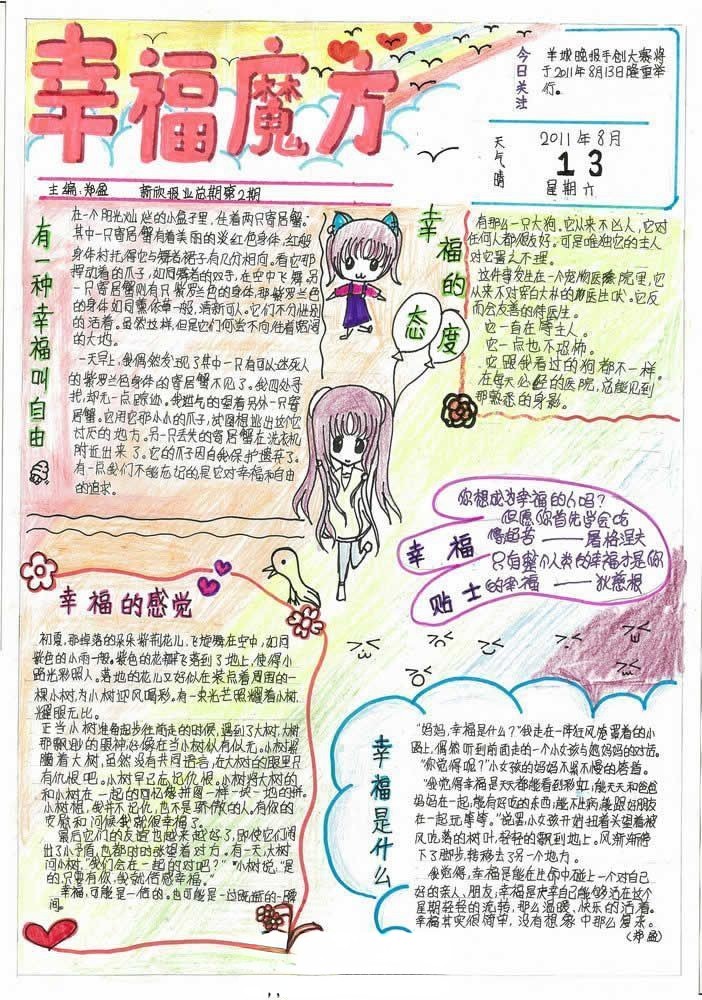 幸福魔方
今日关注
羊城晚报手创大赛将
于2011年8月13日隆重举
行。
天气 晴
2011年8月
13
星期六
主编:郑盈 新欣报业总期第2期
有一种幸福叫自由
在一个阳光灿烂的小盒子里，住着两只寄居蟹。
其中一只寄居蟹有着美丽的炎红色身体，红的
身体衬托得它与舞者裙子有几分相向。看它那
挥动着的爪子，如同舞者的双手，在空中飞舞。另
一只寄居蟹则有只紫罗兰色的身体，那紫罗兰色
的身体如同薰依草一般，清新可人。它们不分彼此
的活着。虽然这样，但是它们何尝不向往着
的大地。
一天早上，我偶然发现了其中一只有可以迷死人
的紫罗兰色身体的寄居蟹不见了。我四处寻
找，却无一点踪迹。我返气的望着另外一只寄
居蟹。它用它那小小的爪子，试图想业出这个它
讨厌的地方。另一只丢失的寄居蟹在洗衣机
附近出来了。它的爪子因自我保护遗弃了。
有一点我们不能忘记的是它对幸福和自由
的追求。
幸福的
态度
有那么一只大狗。它从来不凶人，它对
任何人都很友好。可是唯独它的主人
对它置之不理。
这件事发生在一个宠物医院里，它
从来不对穿白大褂的医生吠。它反
而会友善的待医生。
它一直在等主人。
它一点也不恐怖。
它跟我看过的狗都不一样。
在每天必经的医院，总能见到
那熟悉的身影。
幸福
贴士
你想成为幸福的人吗？
但愿你首先学会吃
得起苦 ——屠格涅夫
只有整个人类的幸福才是你
的幸福 ——狄慈根
幸福的感觉
初夏，那掉落的朵朵紫荆花儿，飞旋舞在空中，如同
紫色的小雨一般。紫色的花瓣飞落到了地上，使得小
路光彩照人。落地的花儿又好似在装点着周围的一
棵小树，为小树迎风喝彩。有一束光芒照耀着小树，
耀眼无比。
正当小树准备起步往前走的时候，遇到了大树，大树
那飘渺的眼神好像在当小树似有似无。小树紧
随着大树，虽然没有共同语言，在大树的眼里只
有仇恨吧。小树早已忘记仇恨。小树将大树的
和小树在一起的回忆像拼图一样一块一地的拼。
小树想，我并不记仇，也不是骄傲的人。有你的
安慰和问候我就很幸福了。
最后它们的友谊也越来越好了，即使它们闹
出了小矛盾，也都时时张望着对方。有一天，大树
问小树，“我们会在一起的对吧？”小树说，“是
的，只要有你，我就倍感幸福。”
幸福，可能是一倍的。也可能是一过既逝的一瞬
间。
幸福是什么
“妈妈，幸福是什么？”我走在一阵狂风席卷着的小
路上，偶然听到前面走的一个小女孩与她妈妈的对话。
“你觉得呢？”小女孩的妈妈不紧不慢的答着。
“我觉得幸福是天天都能看到彩虹，能天天和爸爸
妈妈在一起，能有好吃的东西，能不生病，能跟好朋友
在一起玩等等。”说罢，小女孩开始扭着头望着被
风吹落的树叶，轻轻的飘到地上。风渐渐停
下了脚步，转移去了另一个地方。
我觉得，幸福是能在生命中碰上一个对自己
好的亲人，朋友，幸福是庆幸自己能够活在这个
星期轻轻的流转，那么温暖、快乐的活着。
幸福其实很简单，没有想象中那么复杂。
(郑盈)